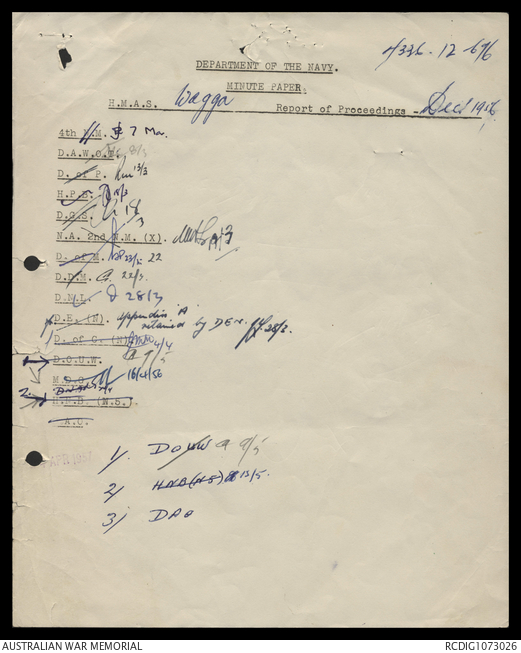 4336-12-676
DEPARTMENT OF THE NAVY.
MINUTE PAPER.
H.M.A.S. Wagga Report of Proceedings - Dec 1956
4th N.M. 7 Mar.
D.A.W.O.T. 8/3
D. of P. 13/3
H.P.S. 15/3
D.G.S.
N.A. 2nd N.M. (X).
D. of M. 22
D.D.M. 22/3
D.N.I. 28/3
D.E. (N). Appendix 'A' retained by DEN. 28/3.
D. of O. (N) 4/4
D.O.U.W. 9/5
16/4/56
H.N.B. (N.S.).
D.A.O.
1/. DOUW 9/5
2/ HNB(NS) 13/5.
3/ DAO
AUSTRALIAN WAR MEMORIAL
RCDIG1073026